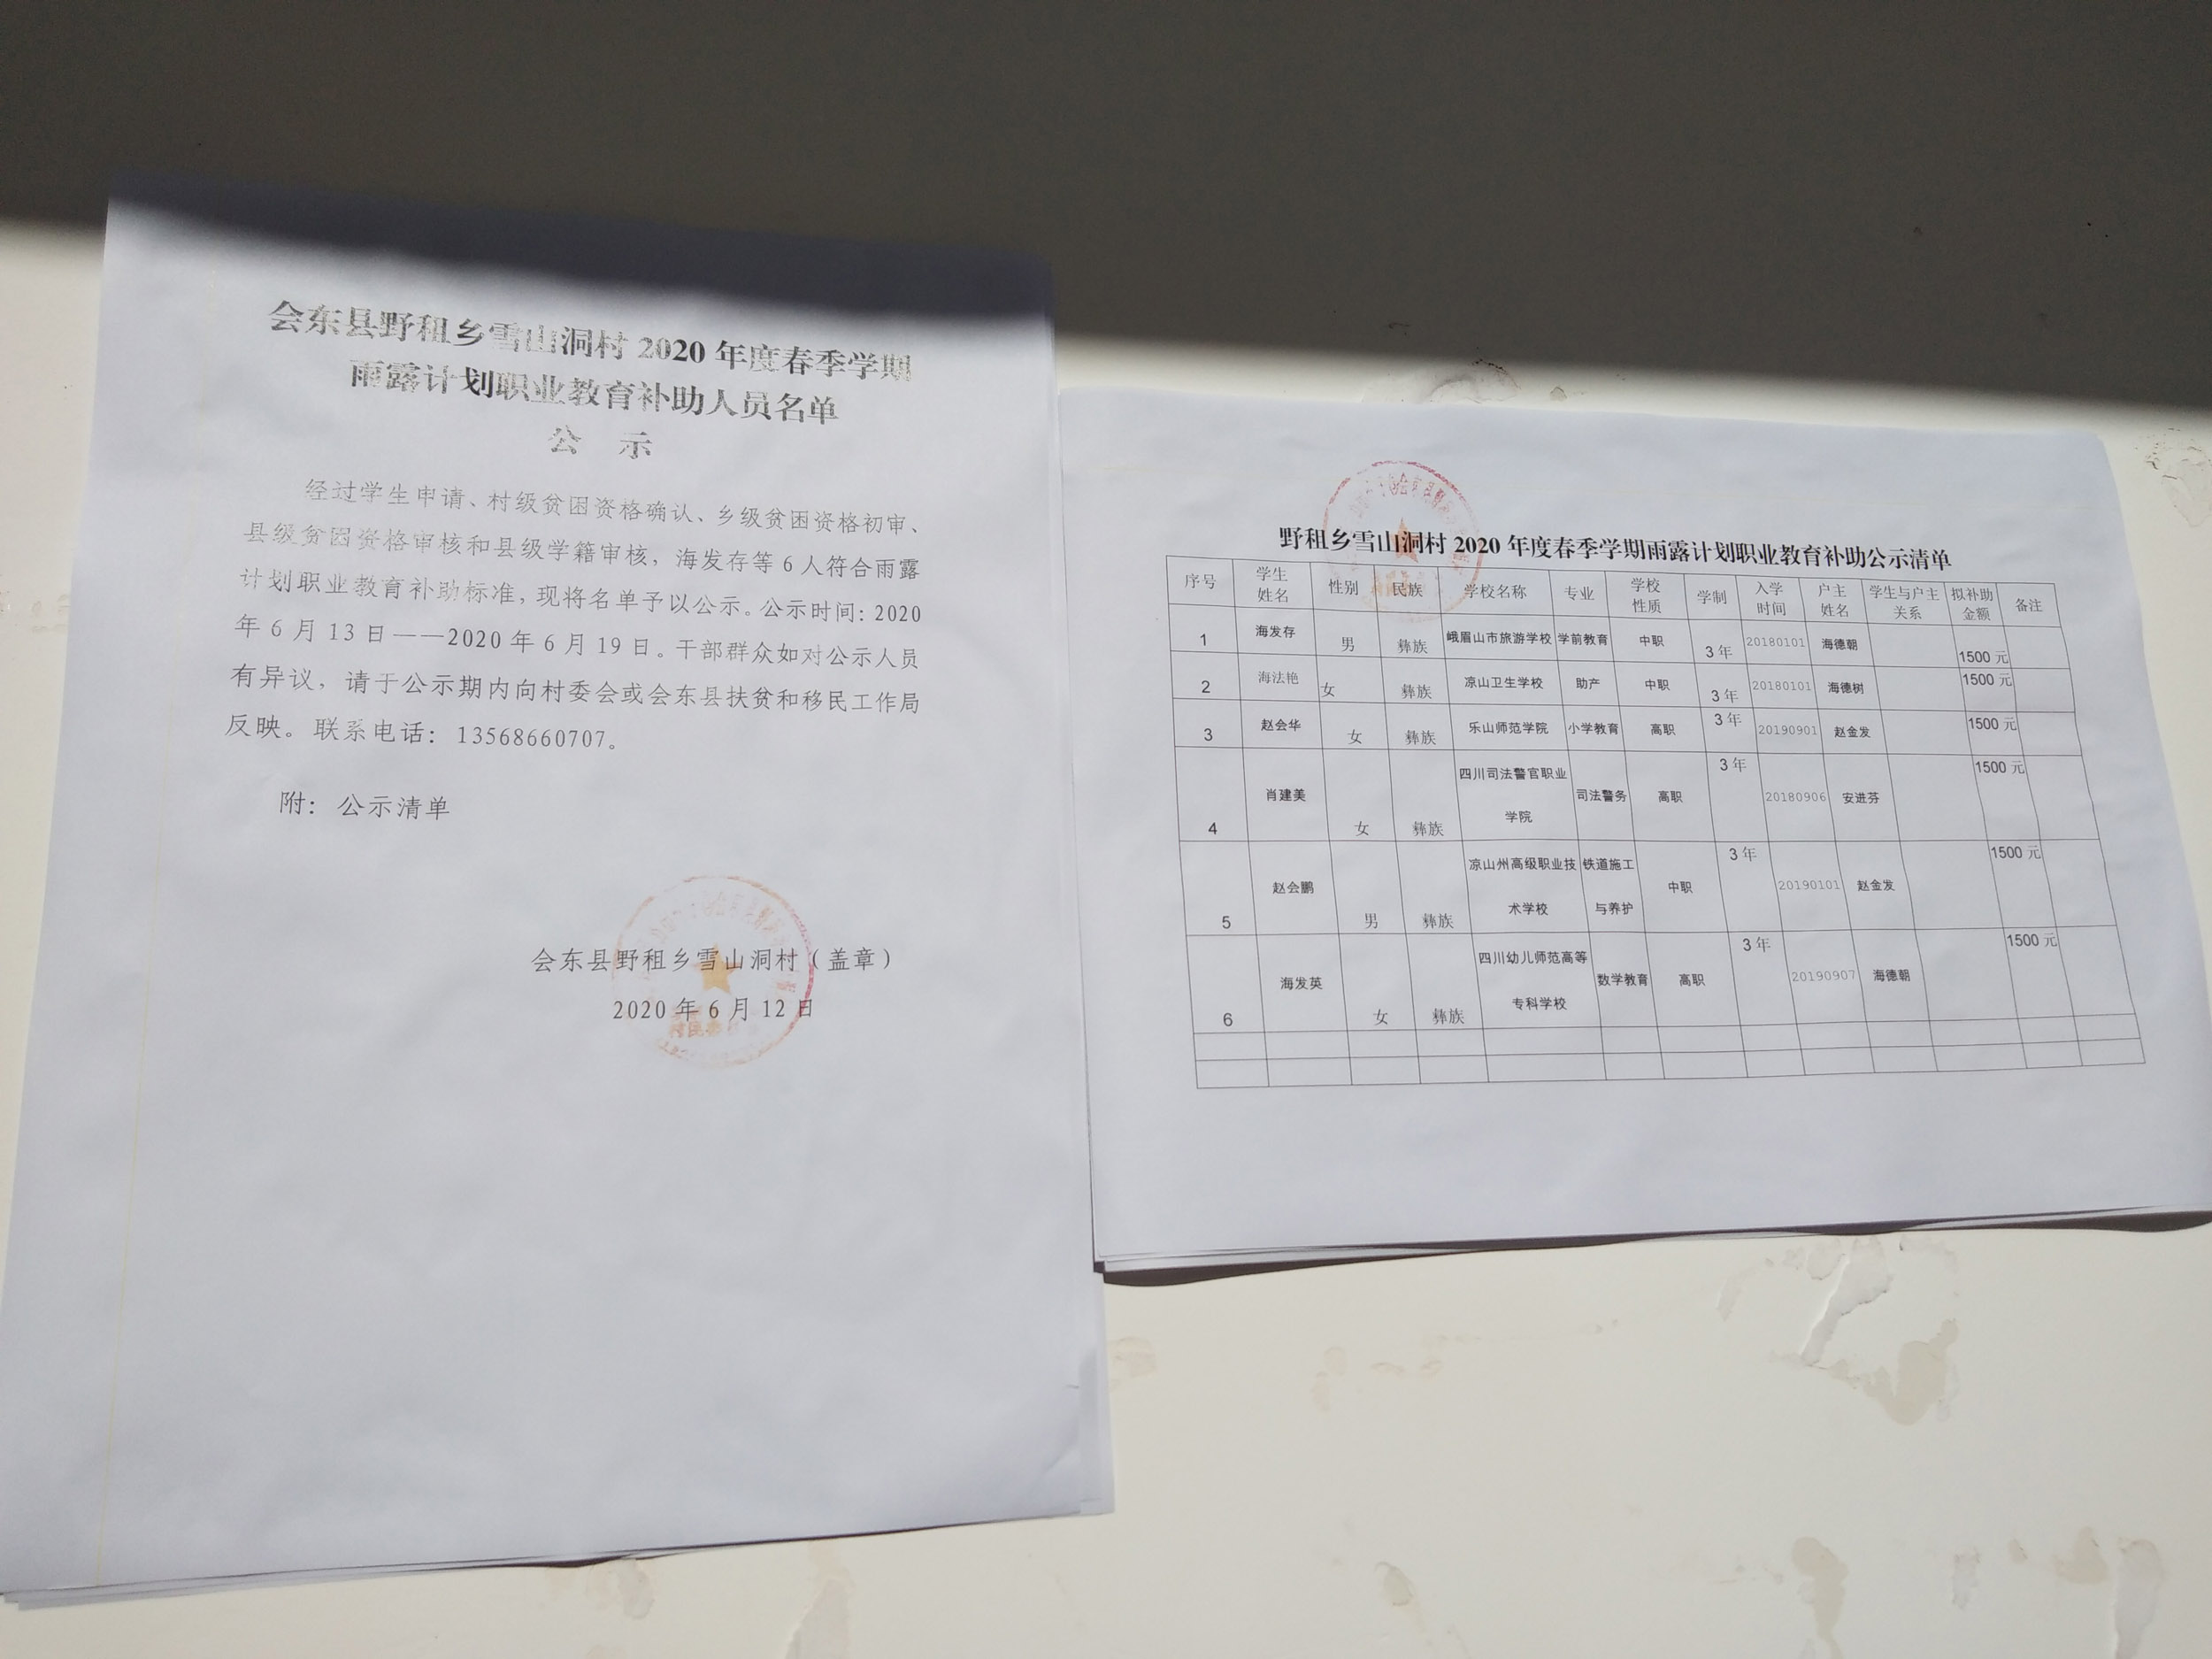 会东县野租乡雪山洞村 2020 年度春季学期
雨露计划职业教育补助人员名单
公 示
经过学生申请、村级贫困资格确认、乡级贫困资格初审、
县级贫困资格审核和县级学籍审核，海发存等 6 人符合雨露
计划职业教育补助标准，现将名单予以公示。公示时间：2020
年 6 月 13 日——2020 年 6 月 19 日。干部群众如对公示人员
有异议，请于公示期内向村委会或会东县扶贫和移民工作局
反映。联系电话：13568660707。
附：公示清单
会东县野租乡雪山洞村（盖章）
2020 年 6 月 12 日
野租乡雪山洞村 2020 年度春季学期雨露计划职业教育补助公示清单
序号 学生姓名 性别 民族 学校名称 专业 学校性质 学制 入学时间 户主姓名 学生与户主关系 拟补助金额 备注
1 海发存 男 彝族 峨眉山市旅游学校 学前教育 中职 3 年 20180101 海德朝 1500 元
2 海法艳 女 彝族 凉山卫生学校 助产 中职 3 年 20180101 海德树 1500 元
3 赵会华 女 彝族 乐山师范学院 小学教育 高职 3 年 20190901 赵金发 1500 元
4 肖建美 女 彝族 四川司法警官职业学院 司法警务 高职 3 年 20180906 安进芬 1500 元
5 赵会鹏 男 彝族 凉山州高级职业技术学校 铁道施工与养护 中职 3 年 20190101 赵金发 1500 元
6 海发英 女 彝族 四川幼儿师范高等专科学校 数学教育 高职 3 年 20190907 海德朝 1500 元